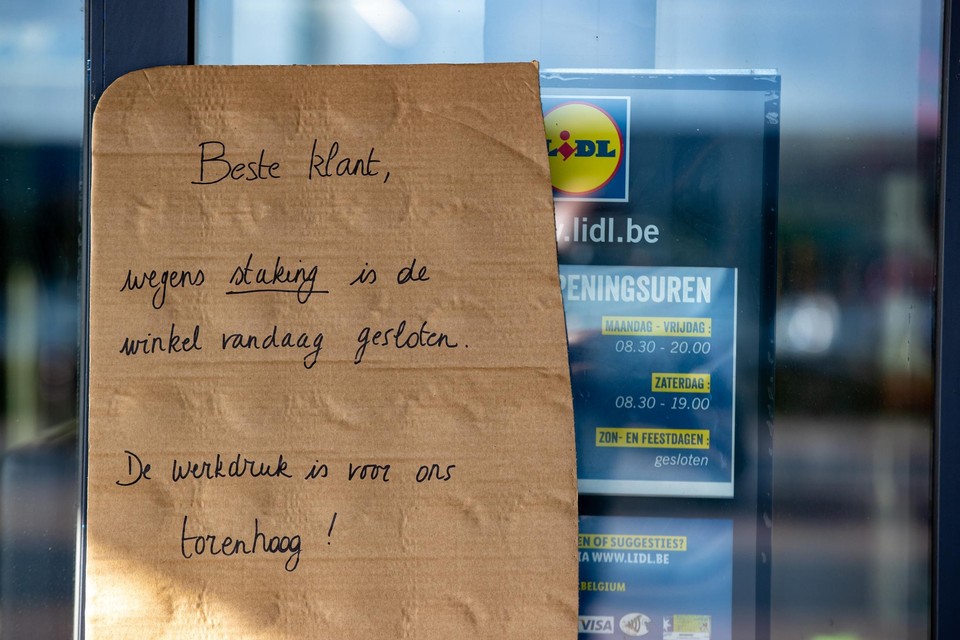 Beste klant,
wegens staking is de
winkel vandaag gesloten.
De werkdruk is voor ons
torenhoog !
LIDL
.lidl.be
PENINGSUREN
MAANDAG - VRIJDAG :
08.30 - 20.00
ZATERDAG :
08.30 - 19.00
ZON- EN FEESTDAGEN :
gesloten
EN OF SUGGESTIES?
IA WWW.LIDL.BE
BELGIUM
VISA